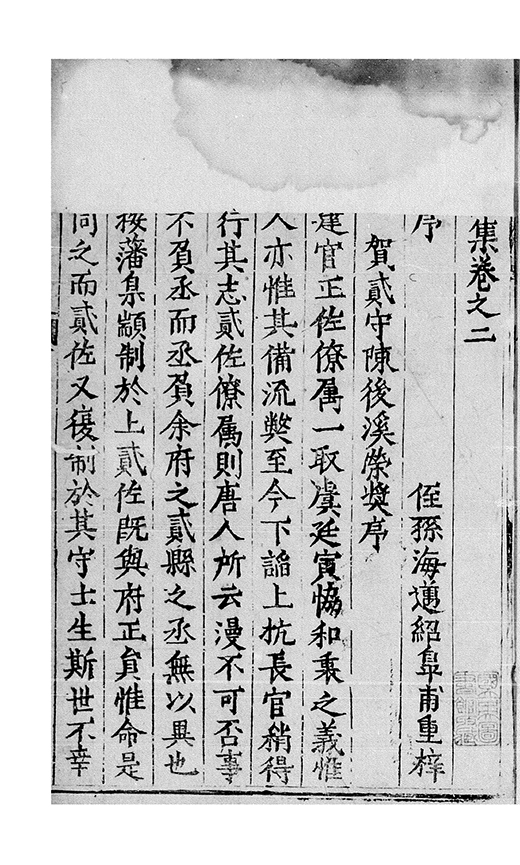 集卷之二
序
侄孫海邁紹臯甫重梓
賀貳守陳後溪榮奬序
建官正佐僚屬一取虞廷寅恊和衷之義惟
人亦惟其備流獘至今下謟上抗長官稍得
行其志貳佐僚屬則唐人所云漫不可否事
不負丞而丞負余府之貳縣之丞無以異也
按藩臬顓制於上貳佐旣與府正負惟命是
同之而貳佐又復制於其守士生斯世不幸